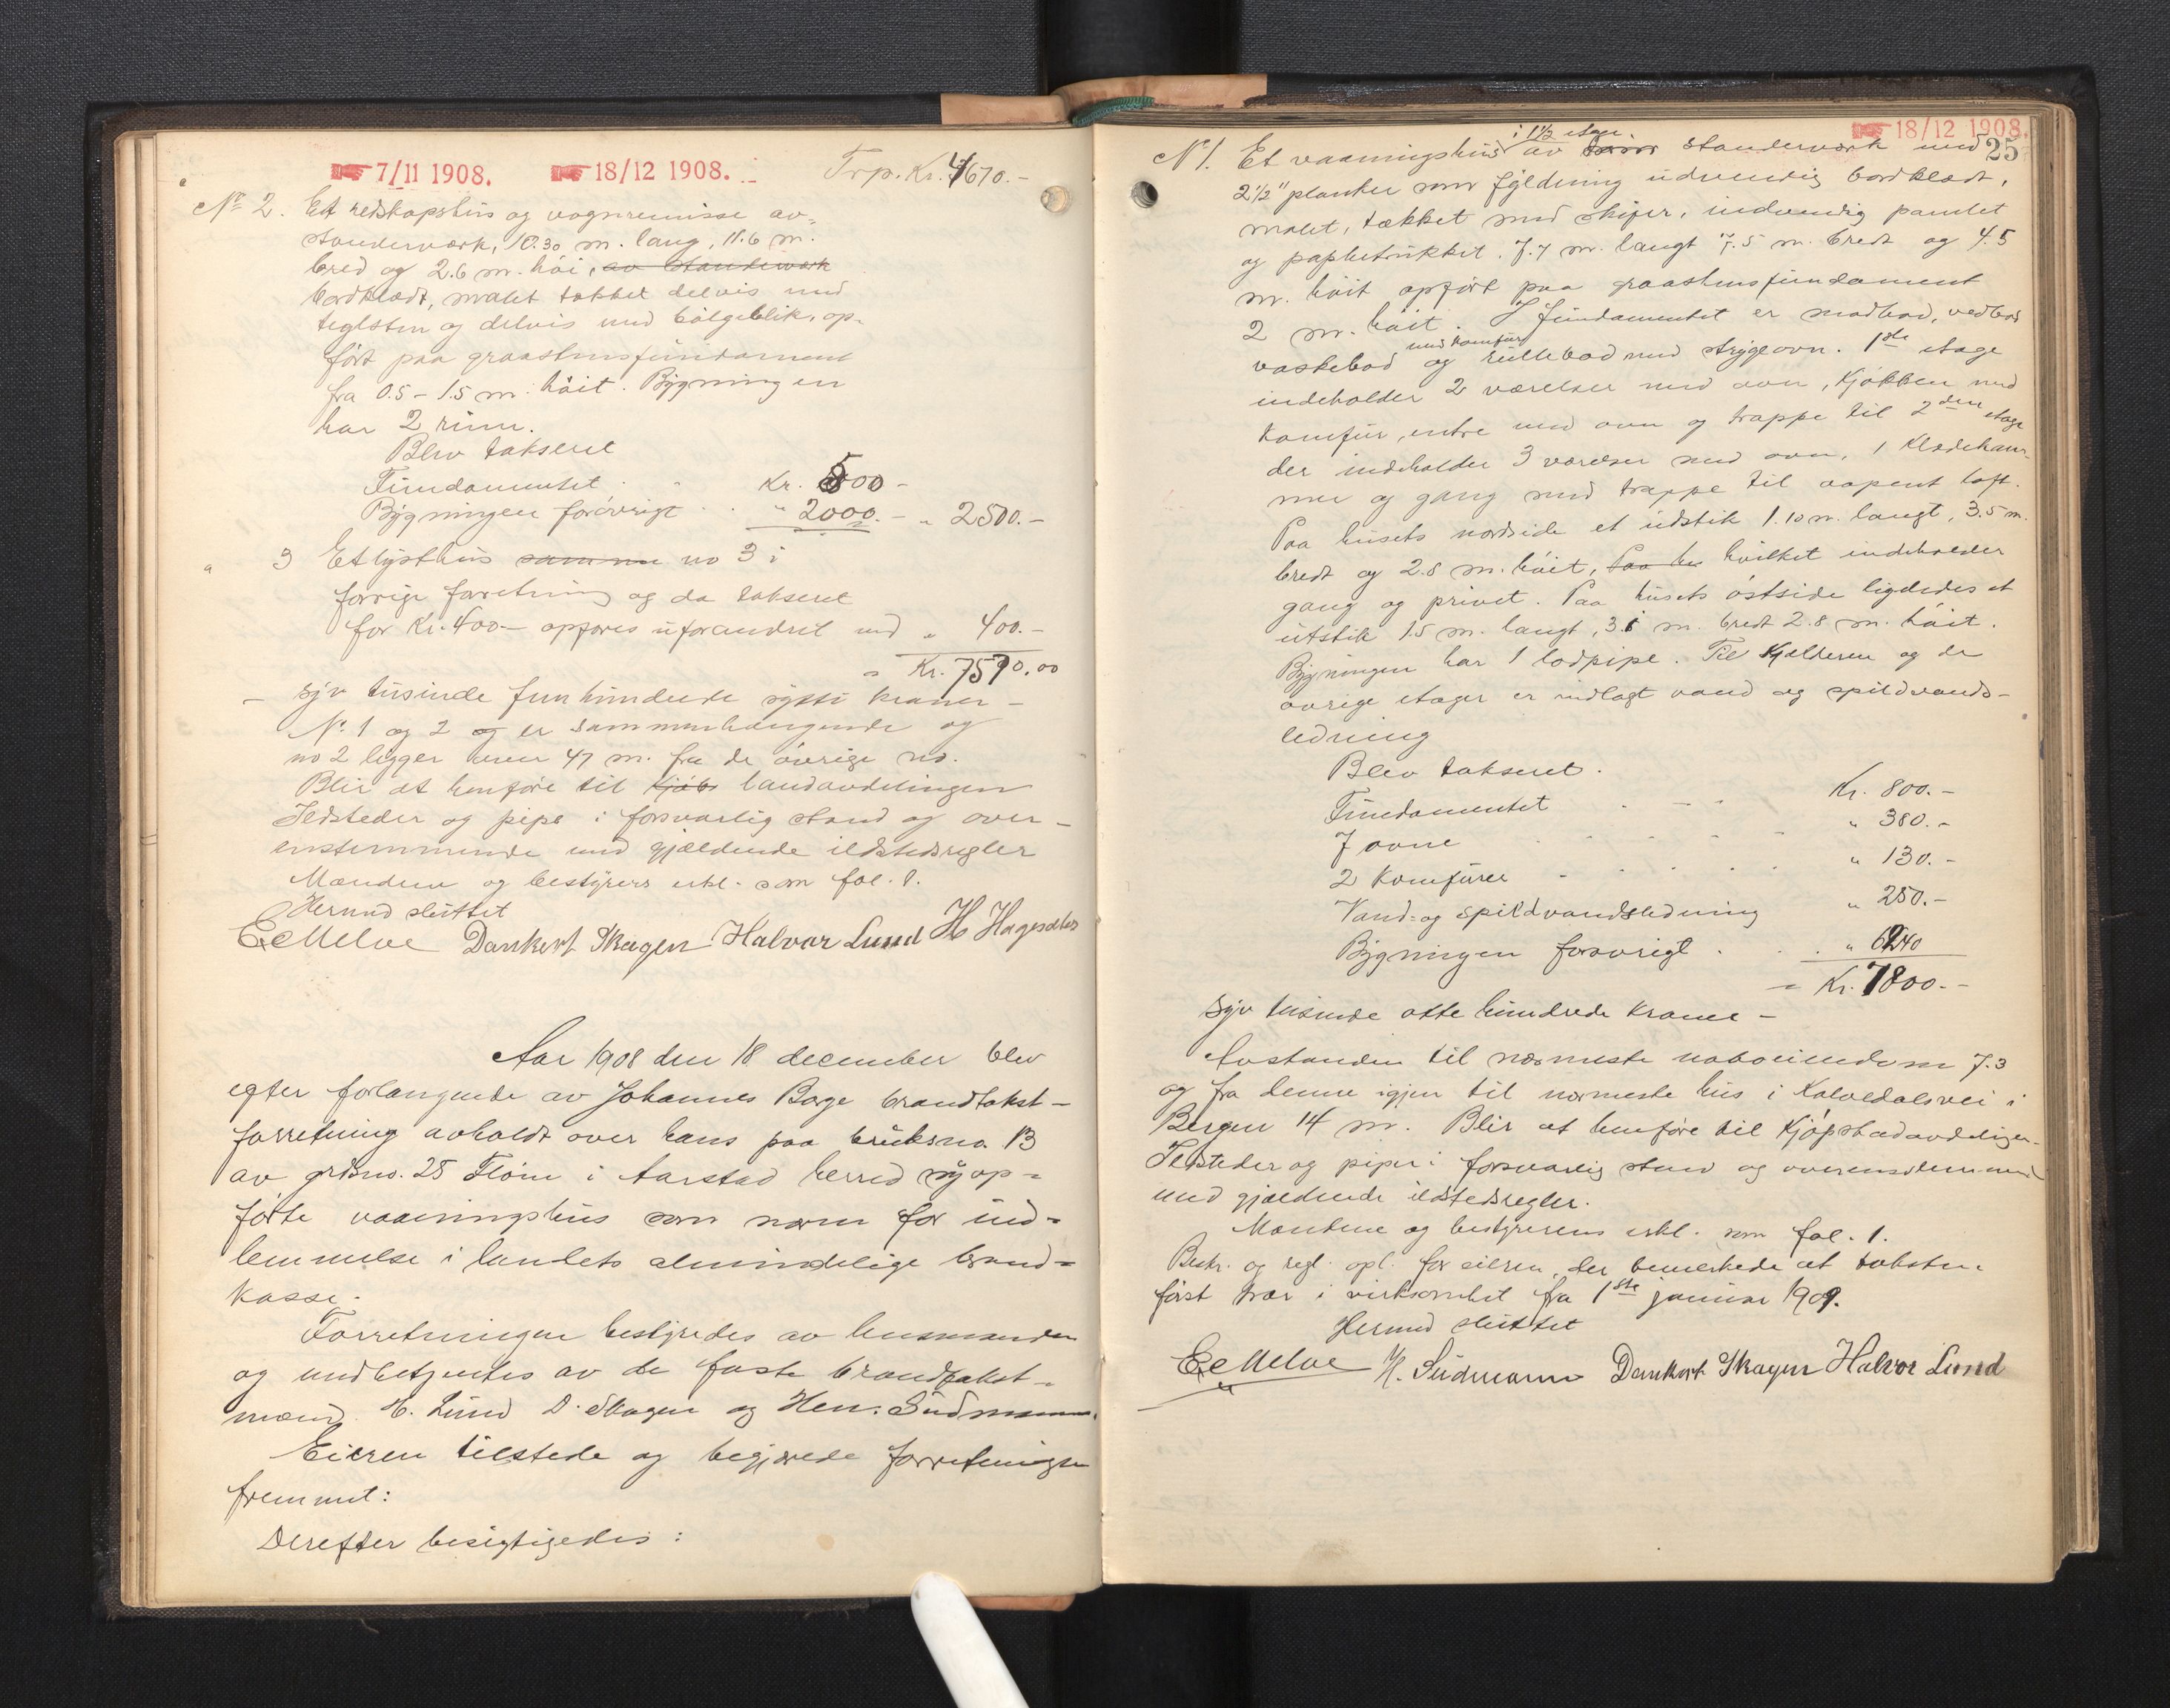 7/11 1908. 18/12 1908. Trp. Kr. 4670.-
No 2. Et redskapshus og vognremisse av
standerværk, 10.30 m. lang, 11.6 m.
bred og 2.6 m. høi, av standerværk
bordklædt, malet tækket delvis med
teglsten og delvis med bølgeblik, op-
ført paa graastensfundament
fra 0.5 - 1.5 m. høit. Bygningen
har 2 rum.
Blev takseret
Fundamentet Kr. 500 -
Bygningen forøvrigt " 2000.- " 2500.-
" 3 Et lysthus samme no 3 i
forrige forretning og da takseret
for Kr. 400- opføres uforandret med " 400.-
= Kr. 7570.00
- syv tusinde fem hundrede sytti kroner -
No. 1 og 2 og er sammenhængende og
no 2 ligger 47 m. fra de øvrige no.
Blir at henføre til kjøbs landavdelingen
Ildsteder og pipe i forsvarlig stand og over-
ensstemmende med gjældende ildstedsregler
Mændene og bestyrers erkl. som fol. 1.
Hermed sluttet
E Melve Dankert Skagen Halvor Lund H Hagesæter
Aar 1908 den 18 december blev
efter forlangende av Johannes Borge brandtakst-
forretning avholdt over hans paa bruksno. 13
av grdsno. 25 Fløen i Aarstad herred nyop-
førte vaaningshus som norm for ind-
lemmelse i landets almindelige brand-
kasse.
Forretningen bestyredes av lensmanden
og medbetjentes av de faste brandtakst-
mænd H. Lund D. Skagen og Hen. Südmann.
Eieren tilstede og begjærede forretningen
fremmet:
Derefter besigtigedes:
18/12 1908.
25
i 1 1/2 etage
No 1. Et vaaningshus av standerværk med
2 1/2" planker som fyldning udvendig bordklædt,
malet, tækket med skifer, indvendig panelet
og papbetrukket. 7.7 m. langt 7.5 m. bredt og 4.5
m. høit opført paa graastensfundament
2 m. høit. I fundamentet er madbod, vedbod
med komfur
vaskebod og rullebod med strygeovn. 1ste etage
indeholder 2 værelser med ovn, kjøkken med
komfur, entre med ovn og trappe til 2den etage
der indeholder 3 værelser med ovn, 1 klædekam-
mer og gang med trappe til aapent loft.
Paa husets nordside et udstik 1.10 m. langt, 3.5 m.
bredt og 2.8 m. høit, Paa hu hvilket indeholder
gang og privet. Paa husets østside ligeledes et
utstik 1.5 m. langt, 3.1 m. bredt 2.8 m. høit.
Bygningen har 1 lodpipe. Til kjelderen og de
øvrige etager er indlagt vand og spildvands-
ledning
Blev takseret.
Fundamentet Kr. 800.-
7 ovne " 380.-
2 komfurer " 130.-
Vand- og spildvandsledning " 250.-
Bygningen forøvrigt " 6240
= Kr. 7800.-
syv tusinde otte hundrede kroner -
Avstanden til nærmeste naboeiendom 7.3
og fra denne igjen til nærmeste hus i Kalvedalsvei i
Bergen 14 m. Blir at henføre til Kjøpstadavdelingen.
Ildsteder og piper i forsvarlig stand og overensstemmende
med gjældende ildstedsregler.
Mændene og bestyrerens erkl. som fol. 1.
Beskr. og regl. opl. for eieren, der bemerkede at taksten
først træ i virksomhet fra 1ste januar 1909.
Hermed sluttet
E Melve H. Südmann Dankert Skagen Halvor Lund